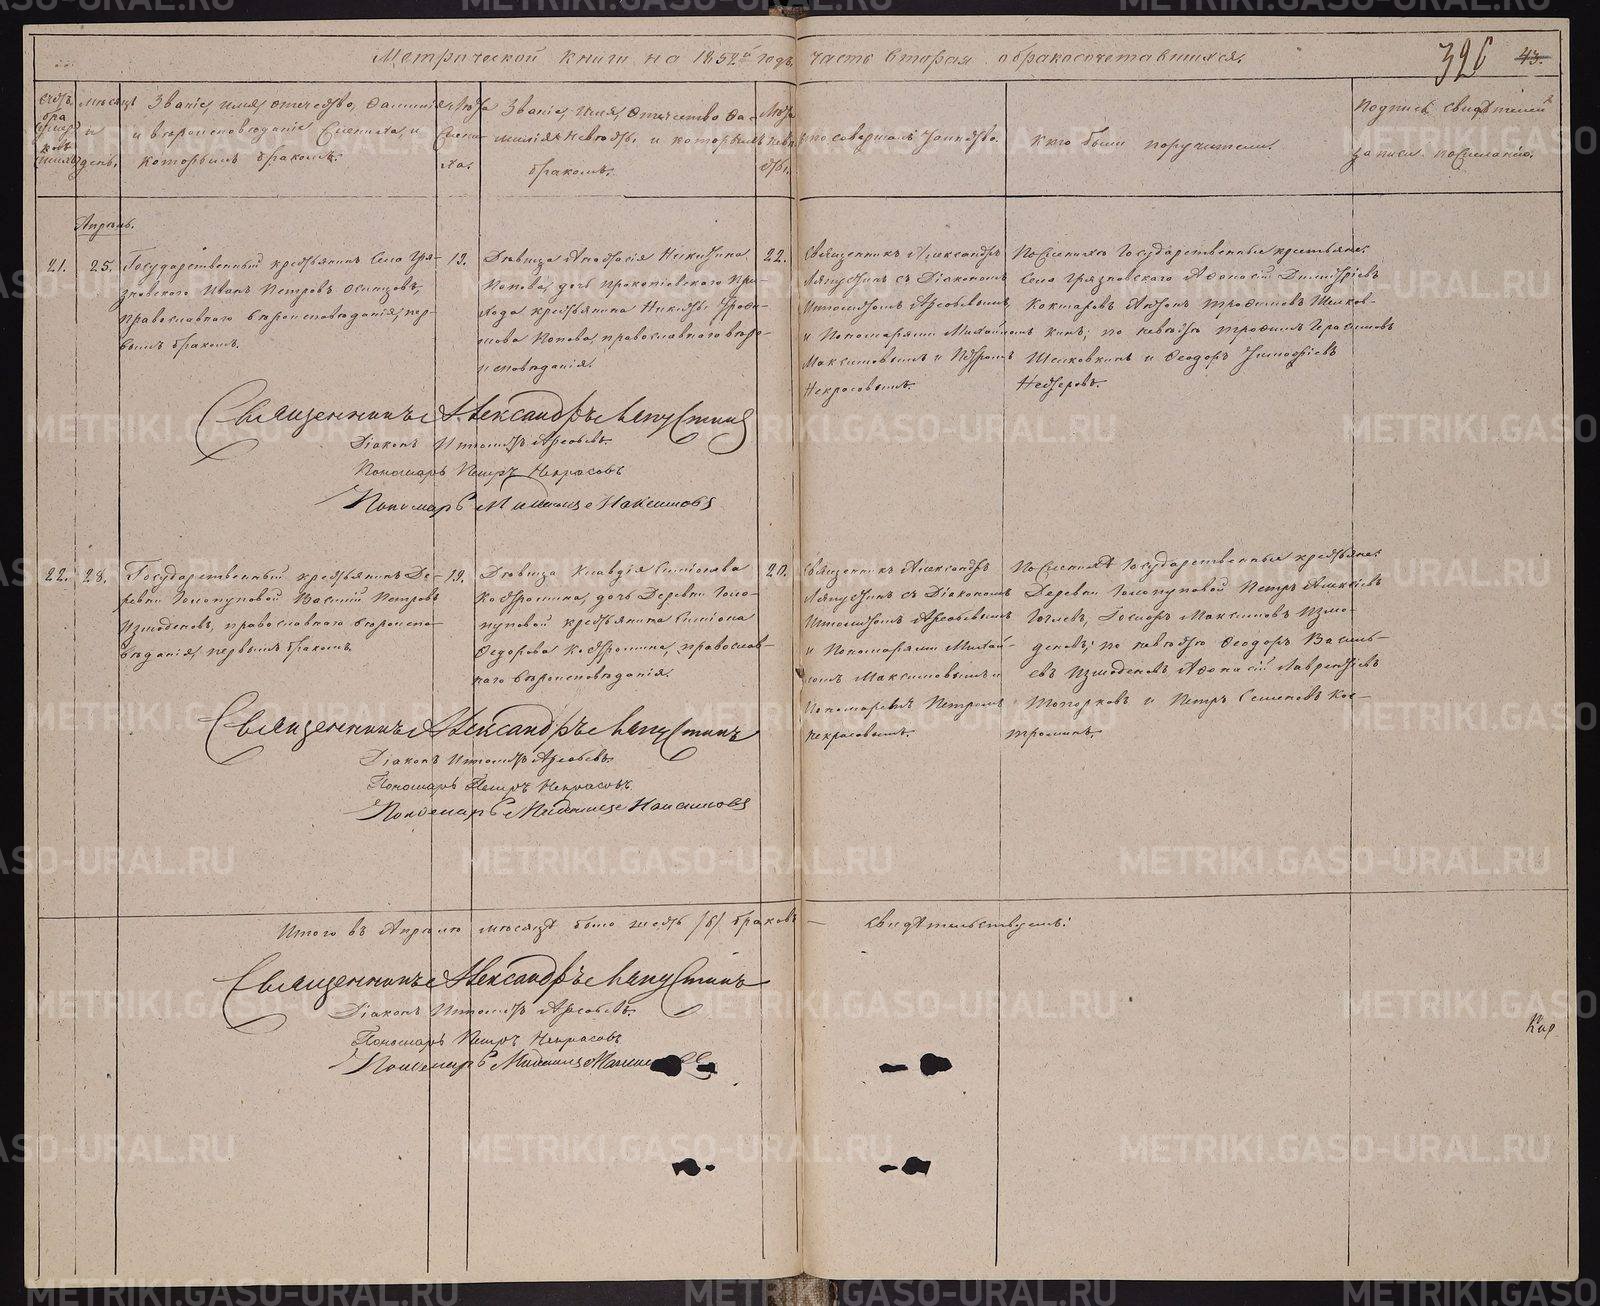 Метрической книги на 1852й годъ, часть вторая о бракосочетавшихся.
396
43.
Счетъ браковъ
мѣсяцъ и день.
Званіе, имя, отчество, фамилія
и вѣроисповѣданіе Жениха, и
которымъ бракомъ.
Лѣта Жениха.
Званіе, имя, отчество, фа-
милія Невѣсты, и которымъ
бракомъ.
Лѣта Невѣсты.
Кто совершалъ Таинство.
Кто были поручители.
Подпись свидѣтелей
записи по желанію.
Апрѣль.
21.
25.
Государственный крестьянинъ Села Гря-
зновскаго Иванъ Петровъ Осинцовъ,
Православнаго вѣроисповѣданія, пер-
вымъ бракомъ.
19.
Дѣвица Анастасія Никитина
Попова, дочь
хода крестьянина Никиты
Попова, православнаго вѣро-
исповѣданія.
22.
Священникъ Александръ
Ляпустинъ съ Діакономъ
Ипполитомъ Арефьевымъ
и Пономарями Михаиломъ
Максимовымъ и Петромъ
Некрасовымъ.
По женихѣ Государственные крестьяне:
Села Грязновскаго Афонасій Дмитріевъ
Кокшаровъ, Антонъ Трофимовъ Шелков-
кинъ; по невѣстѣ Трофимъ Герасимовъ
Шелковкинъ и Феодоръ Тимофѣевъ
Священникъ Александръ Ляпустинъ
Діаконъ Ипполитъ Арефьевъ.
Пономарь Петръ Некрасовъ
Пономарь Михаилъ Максимовъ
22.
28.
Государственный крестьянинъ Де-
ревни Голопуповой Василій Петровъ
Измоденовъ, православнаго вѣроиспо-
вѣданія, первымъ бракомъ.
19.
Дѣвица Клавдія Симіонова
Костромина, дочь Деревни Голо-
пуповой крестьянина Симіона
Федорова Костромина, православ-
наго вѣроисповѣданія.
20.
Священникъ Александръ
Ляпустинъ съ Діакономъ
Ипполитомъ Арефьевымъ
и Пономарями Михаи-
ломъ Максимовымъ и
Пономаремъ Петромъ
Некрасовымъ.
По женихѣ Государственные крестьяне:
Деревни Голопуповой Петръ Алексѣевъ
Максимовъ Измо-
деновъ; по невѣстѣ Феодоръ Василь-
евъ Измоденовъ, Афонасій Лаврентьевъ
Топорковъ и Петръ Семеновъ Кос-
троминъ.
Священникъ Александръ Ляпустинъ
Діаконъ Ипполитъ Арефьевъ.
Пономарь Петръ Некрасовъ.
Пономарь Михаилъ Максимовъ
Итого въ Апрѣлѣ мѣсяцѣ было шесть /6/ браковъ — Свидѣтельствуемъ:
Священникъ Александръ Ляпустинъ
Діаконъ Ипполитъ Арефьевъ.
Пономарь Петръ Некрасовъ
Пономарь Михаилъ
METRIKI.GASO-URAL.RU